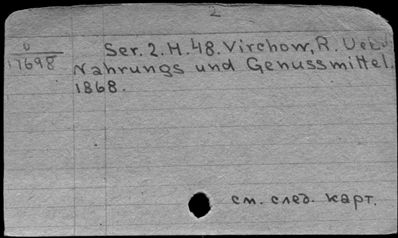 2
U
17698
Ser. 2. H. 48. Virchow, R. Ueb.
Nahrungs und Genussmittel.
1868.
см. след. карт.